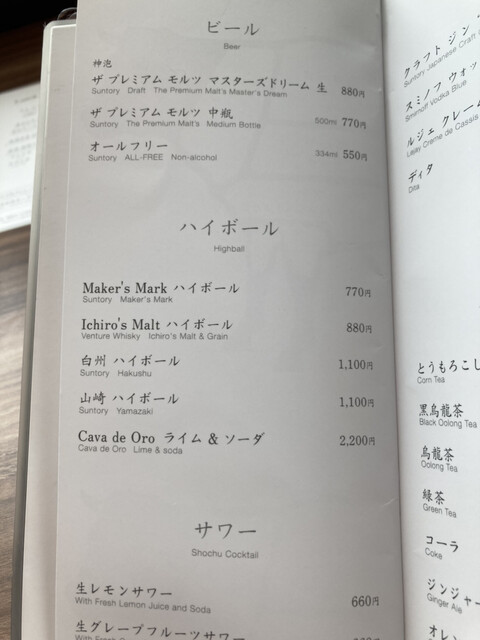 ビール
Beer
神泡
ザ プレミアム モルツ マスターズドリーム 生 880円
Suntory Draft The Premium Malt's Master's Dream
ザ プレミアム モルツ 中瓶 500ml 770円
Suntory The Premium Malt's Medium Bottle
オールフリー 334ml 550円
Suntory ALL-FREE Non-alcohol
ハイボール
Highball
Maker's Mark ハイボール 770円
Suntory Maker's Mark
Ichiro's Malt ハイボール 880円
Venture Whisky Ichiro's Malt & Grain
白州 ハイボール 1,100円
Suntory Hakushu
山崎 ハイボール 1,100円
Suntory Yamazaki
Cava de Oro ライム & ソーダ 2,200円
Cava de Oro Lime & soda
サワー
Shochu Cocktail
生レモンサワー 660円
With Fresh Lemon Juice and Soda
生グレープフルーツサワー 660円
クラフト ジン
Suntory Japanese Craft
スミノフ ウォッ
Smirnoff Vodka Blue
ルジェ クレーム
Lejay Creme de Cassis
ディタ
Dita
とうもろこし
Corn Tea
黒烏龍茶
Black Oolong Tea
烏龍茶
Oolong Tea
緑茶
Green Tea
コーラ
Coke
ジンジャー
Ginger Ale
オレ